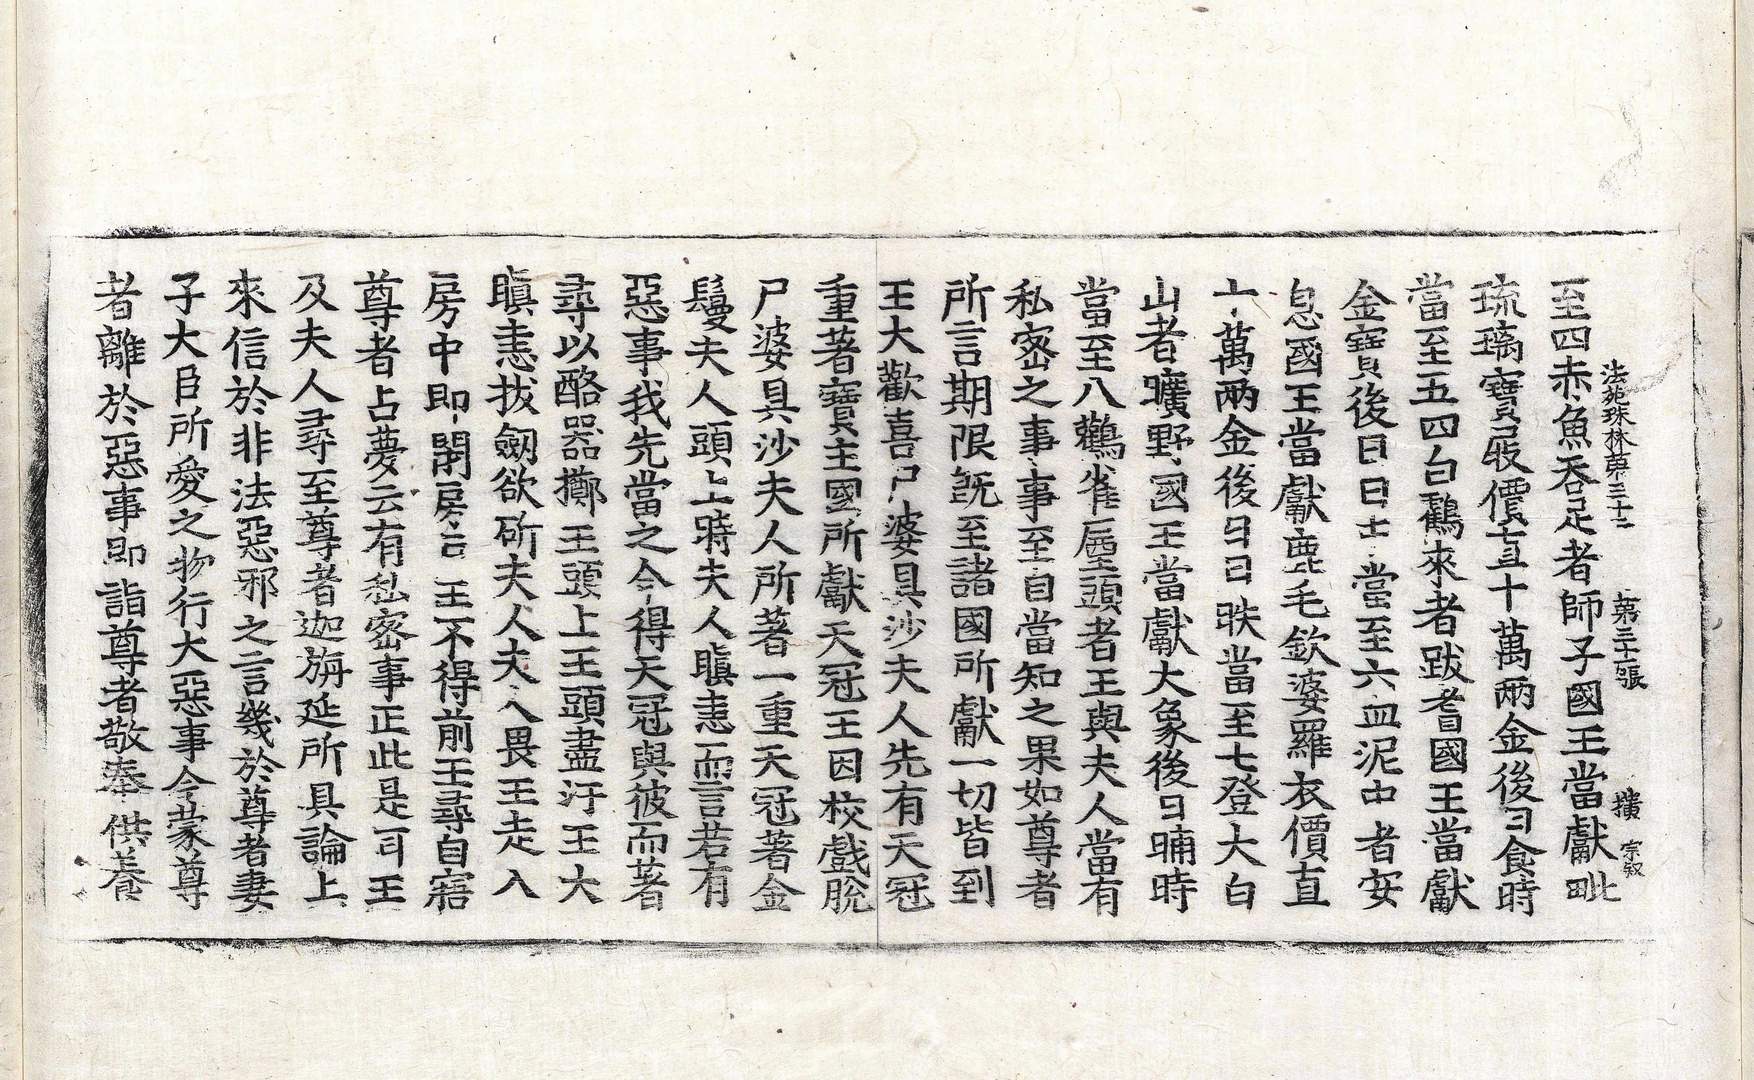 法苑珠林第三十二 第三十二張 壙 宗叔
至四赤魚呑足者師子國王當獻毗
琉璃寶屐價直十萬兩金後日食時
當至五四白鶴來者跋耆國王當獻
金寶後日日中當至六血泥中者安
息國王當獻鹿毛欽婆羅衣價直
十萬兩金後日日昳當至七登大白
山者曠野國王當獻大象後日晡時
當至八鸛雀屎頭者王與夫人當有
私密之事事至自當知之果如尊者
所言期限旣至諸國所獻一切皆到
王大歡喜尸婆具沙夫人先有天冠
重著寶主國所獻天冠王因校戲脫
尸婆具沙夫人所著一重天冠著金
鬘夫人頭上時夫人瞋恚而言若有
惡事我先當之今得天冠與彼而著
尋以酪器擲王頭上王頭盡汙王大
瞋恚拔劒欲斫夫人夫人畏王走入
房中即閉房戶王不得前王尋自寤
尊者占夢云有私密事正此是耳王
及夫人尋至尊者迦旃延所具論上
來信於非法惡邪之言幾於尊者妻
子大臣所愛之物行大惡事今蒙尊
者離於惡事即詣尊者敬奉供養